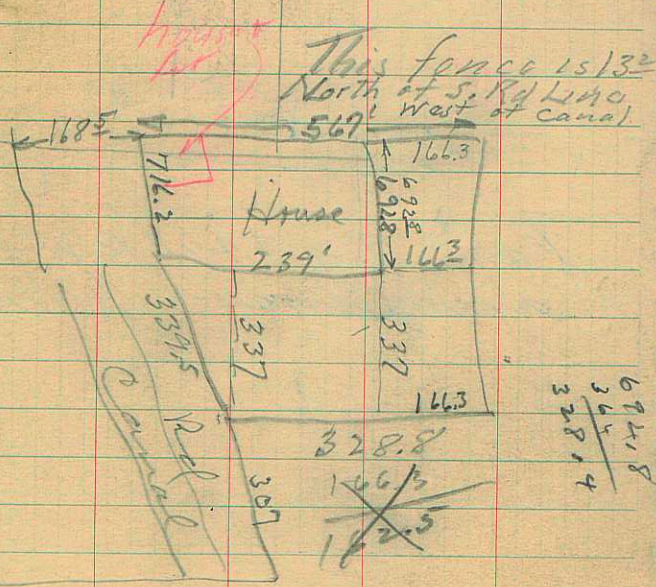 house
for
This fence is 13²
North of S. Rd Line
West of Canal
168⁵
567
166.3
716.2
House
692.8
692⁸
239'
166³
339.5
337
337
Canal
Rd
166.3
328.8
307
166.3
162.5
694.8
364
328.4